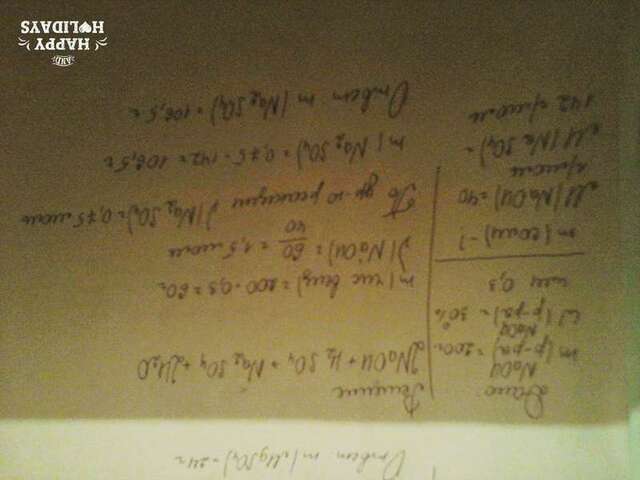 Ответ m(MgSO₄)=24г
Дано
NaOH
m(р-ра)=200г
NaOH
ω(р-ра)=30%
или 0,3
m(соли)-?
M(NaOH)=40
г/моль
M(Na SO₄)=
142 г/моль
Решение
2NaOH+H₂SO₄→Na₂SO₄+2H₂O
m(чис вещ)=200·0,3=60г
ν(NaOH)=60/40=1,5моль
По ур-ю реакции ν(Na₂SO₄)=0,75моль
m(Na₂SO₄)=0,75·142=106,5г
Ответ m(Na₂SO₄)=106,5г
AND
HAPPY
HOLIDAYS